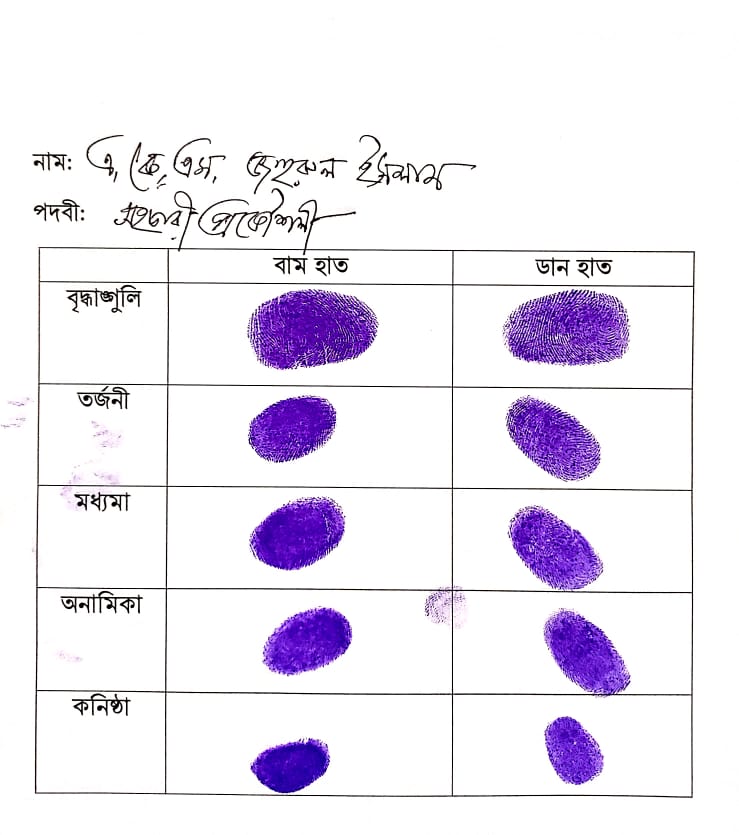 নাম: এ, কে, এম, জহুরুল ইসলাম
পদবী: সহকারী প্রকৌশলী
বাম হাত ডান হাত
বৃদ্ধাঙ্গুলি
তর্জনী
মধ্যমা
অনামিকা
কনিষ্ঠা